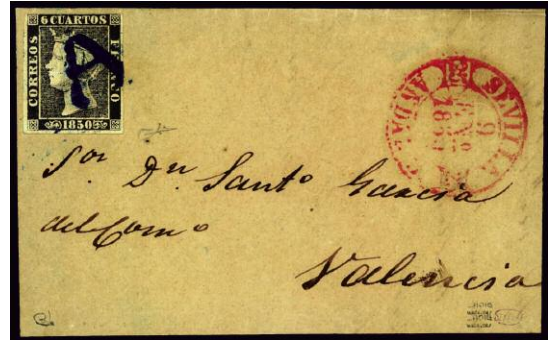 6 CUARTOS
CORREOS
FRANCO
1850
A
SEVILLA
9
ANDAL
Sor Dn Santo Garcia
del Como
Valencia